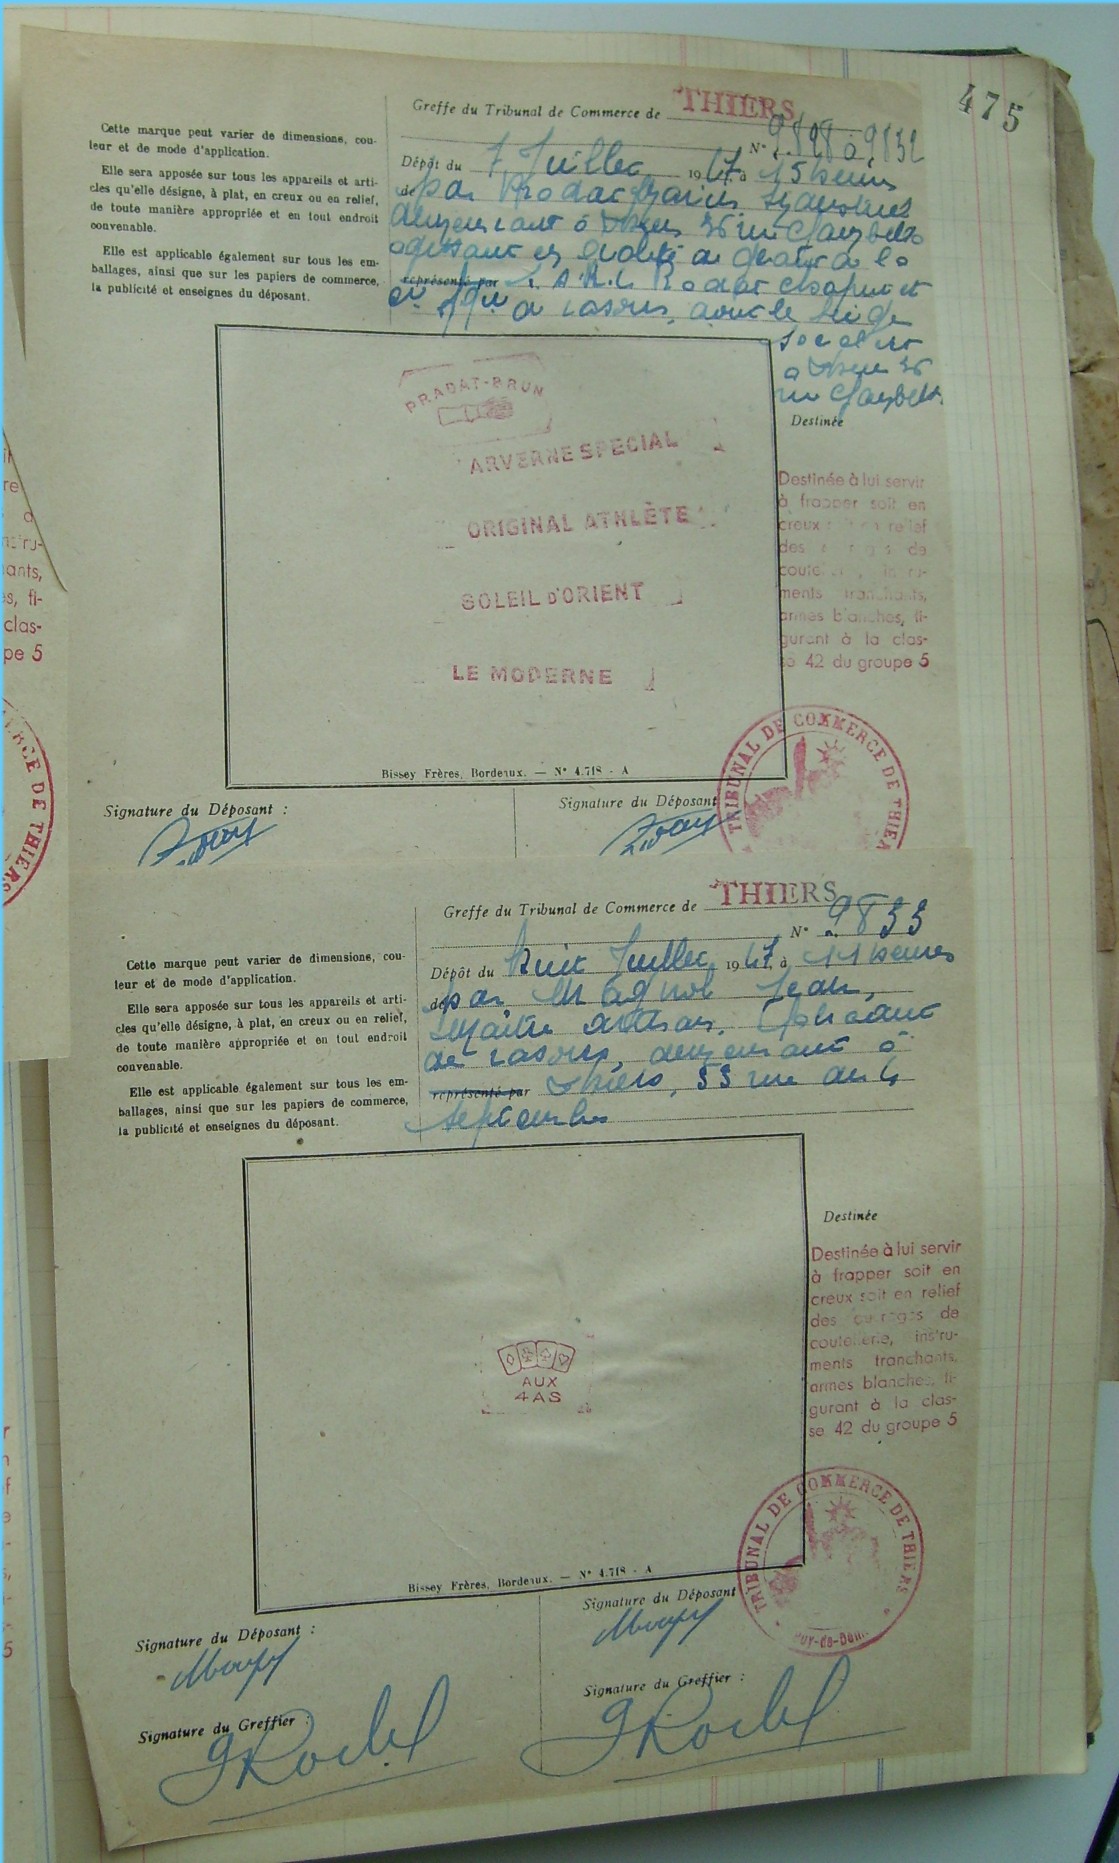 475
Greffe du Tribunal de Commerce de THIERS
N° 9828 à 9832
Dépôt du 7 Juillet 1947, à 15 heures
par Marius
demeurant à Thiers 36 rue Gambetta
agissant en qualité de gérant de la
représenté par S.A.R.L.
de rasoirs, dont le siège
social est
à Thiers 36
rue Gambetta
Cette marque peut varier de dimensions, cou-
leur et de mode d'application.
Elle sera apposée sur tous les appareils et arti-
cles qu'elle désigne, à plat, en creux ou en relief,
de toute manière appropriée et en tout endroit
convenable.
Elle est applicable également sur tous les em-
ballages, ainsi que sur les papiers de commerce,
la publicité et enseignes du déposant.
PRADAT-BRUN
ARVERNE SPECIAL
ORIGINAL ATHLÈTE
SOLEIL D'ORIENT
LE MODERNE
Bissey Frères, Bordeaux. — N° 4.718 - A
Destinée
Destinée à lui servir
à frapper soit en
creux soit en relief
des de
coute ins'ru-
ments tranchants,
armes blanches, fi-
gurant à la clas-
se 42 du groupe 5
Signature du Déposant :
Signature du Déposant
TRIBUNAL DE COMMERCE DE THIE
ins'ru-
ants,
s, fi-
clas-
pe 5
RCE DE THIERS
Greffe du Tribunal de Commerce de THIERS
N° 9833
Dépôt du huit Juillet 1947, à 11 heures
par Magnol Jean,
Maître artisan, fabricant
de rasoirs, demeurant à
représenté par Thiers, 33 rue du 4
septembre
Cette marque peut varier de dimensions, cou-
leur et de mode d'application.
Elle sera apposée sur tous les appareils et arti-
cles qu'elle désigne, à plat, en creux ou en relief,
de toute manière appropriée et en tout endroit
convenable.
Elle est applicable également sur tous les em-
ballages, ainsi que sur les papiers de commerce,
la publicité et enseignes du déposant.
AUX
4 AS
Bissey Frères, Bordeaux. — N° 4.718 - A
Destinée
Destinée à lui servir
à frapper soit en
creux soit en relief
des ouvrages de
coutellerie, ins'ru-
ments tranchants,
armes blanches, fi-
gurant à la clas-
se 42 du groupe 5
TRIBUNAL DE COMMERCE DE THIERS
Puy-de-Dôme
Signature du Déposant :
Signature du Déposant
Signature du Greffier :
Signature du Greffier :